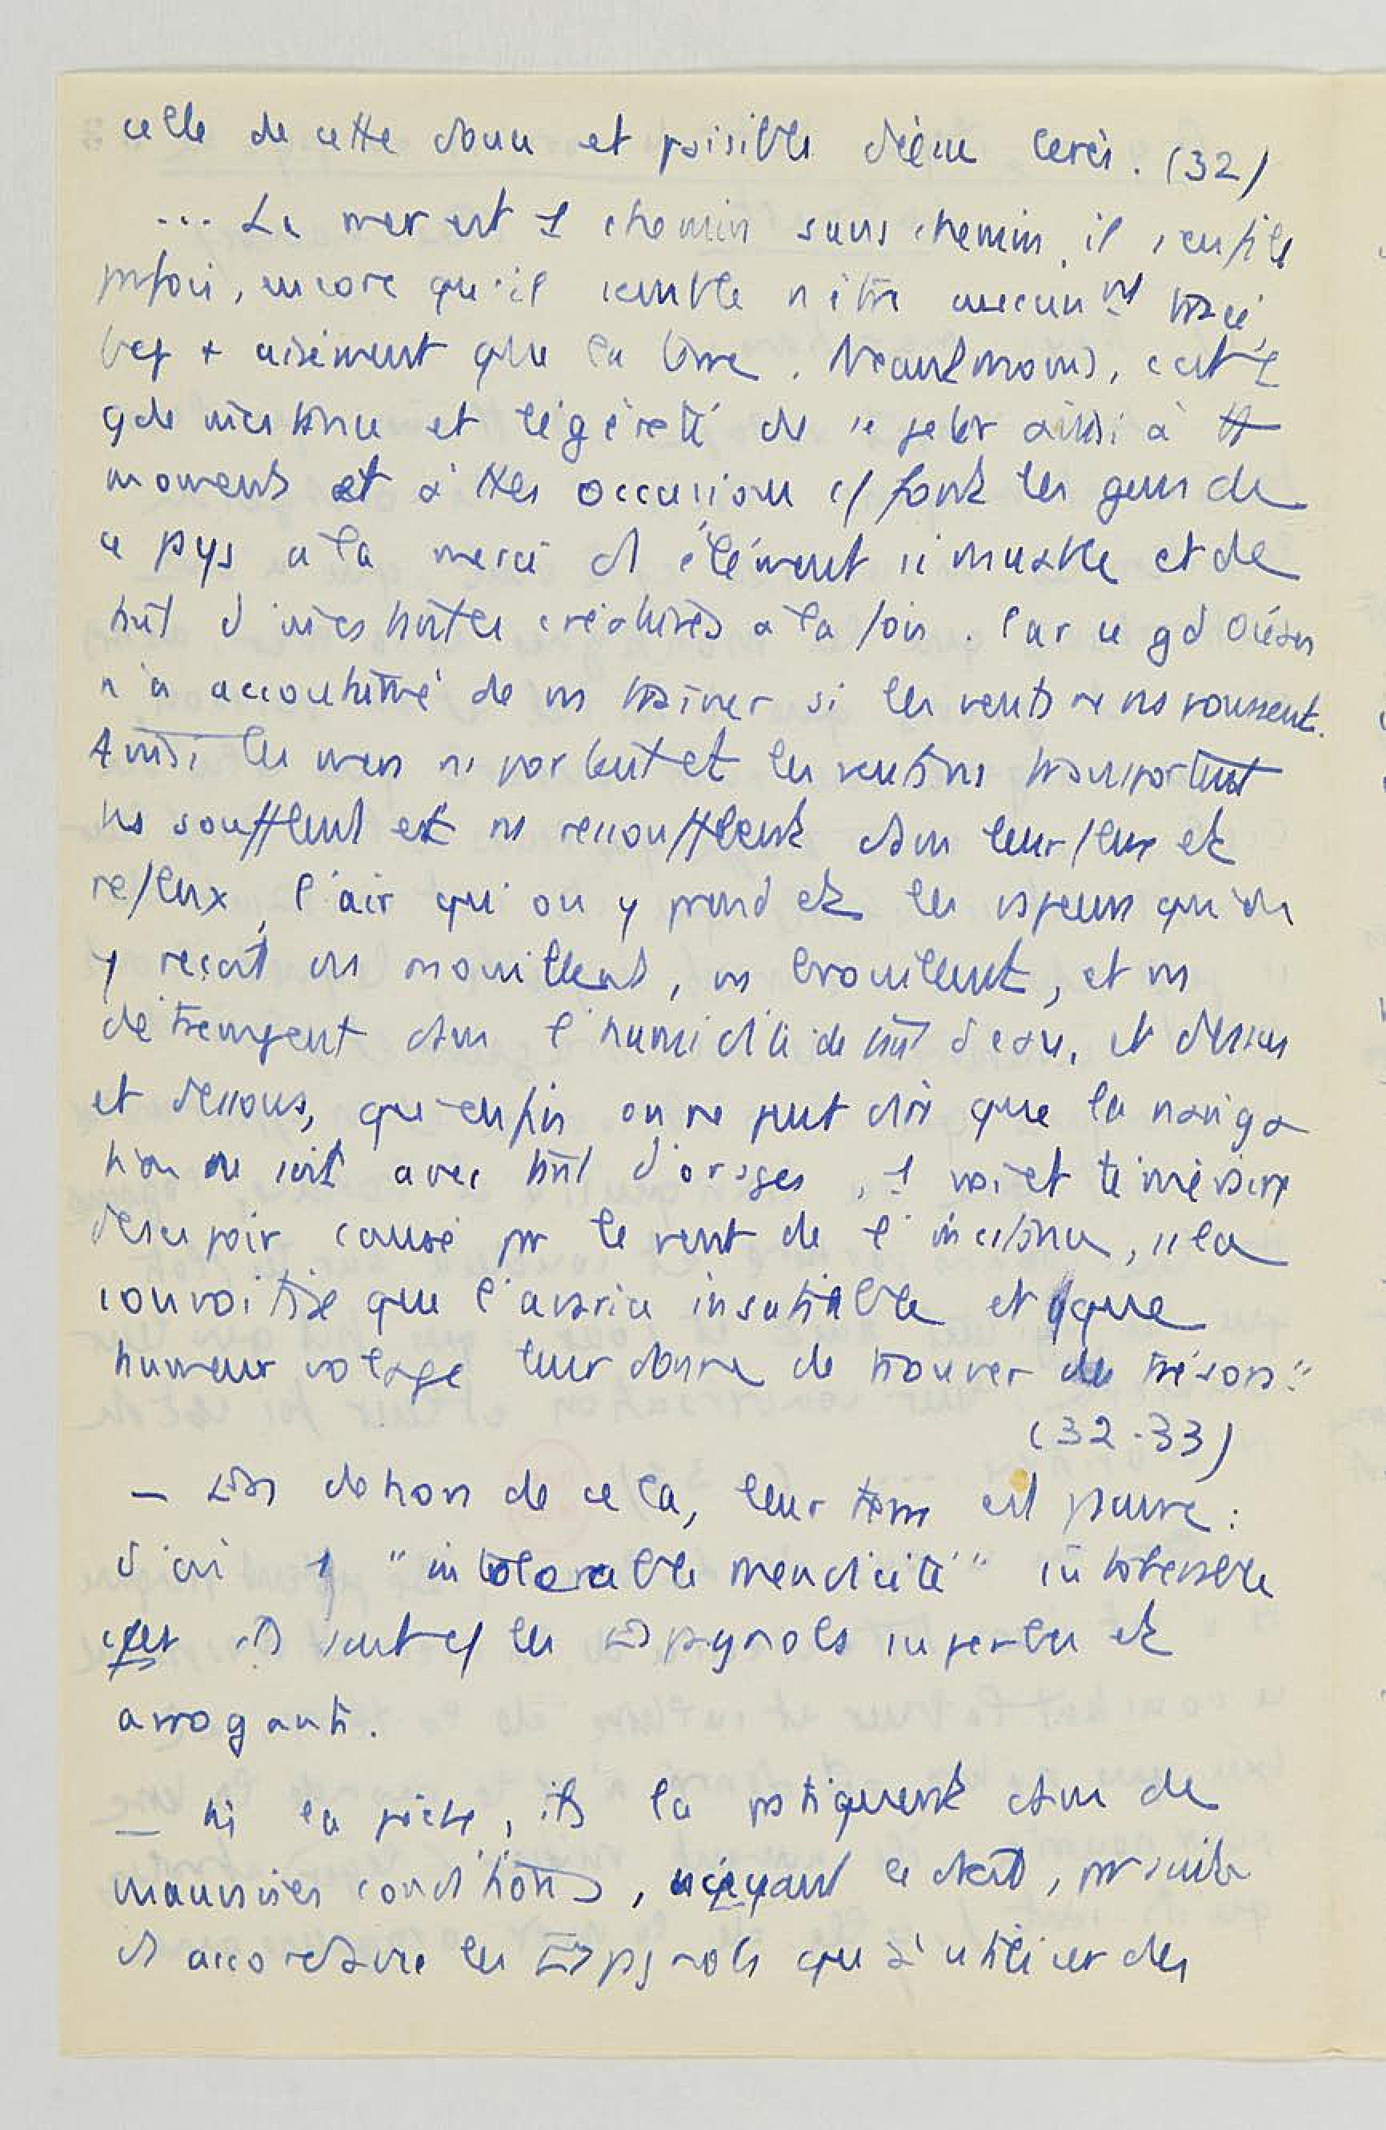 celle de cette douce et paisible déesse Cerès. (32)
... La mer est 1 chemin sans chemin, il s'enfile
parfois, encore qu'il semble n'être aucunnt tracé,
bcp + aisément que la terre. Neantmoins, c'est 1
gde incertitude et légèreté de se jeter ainsi à tt
moments et à ttes occasions c/ font les gens de
ce pays à la merci d'élément si muable et de
tant d'incertites créatures à la fois. Car ce gd Océan
n'a accoutumé de ns traîner si les vents ne ns poussent.
Ainsi les mers ns portent et les vents ns transportent
ns soufflent et ns ressoufflent dans leur flux et
reflux, l'air qu'on y prend et les vapeurs qu'on
y reçoit ns mouillent, ns brouillent, et ns
détrempent dans l'humidité de tant d'eau, et dessus
et dessous, qu'enfin on ne peut dire que la naviga
tion ne soit avec tant d'orages, 1 vrai et téméraire
desespoir causé par le vent de l'inconstance, si la
convoitise que l'avarice insatiable et qque
humeur volage leur donne de trouver des trésors."
(32-33)
— En dehors de cela, leur terre est pauvre :
d'où 1 "intolerable mendicité" intolerable
car ils sont c/ les Espagnols superbes et
arrogants.
— ni la pêche, ils la pratiquent dans de
mauvaises conditions, n'ayant le droit, par suite
d'accord avec les Espagnols que d'utiliser des